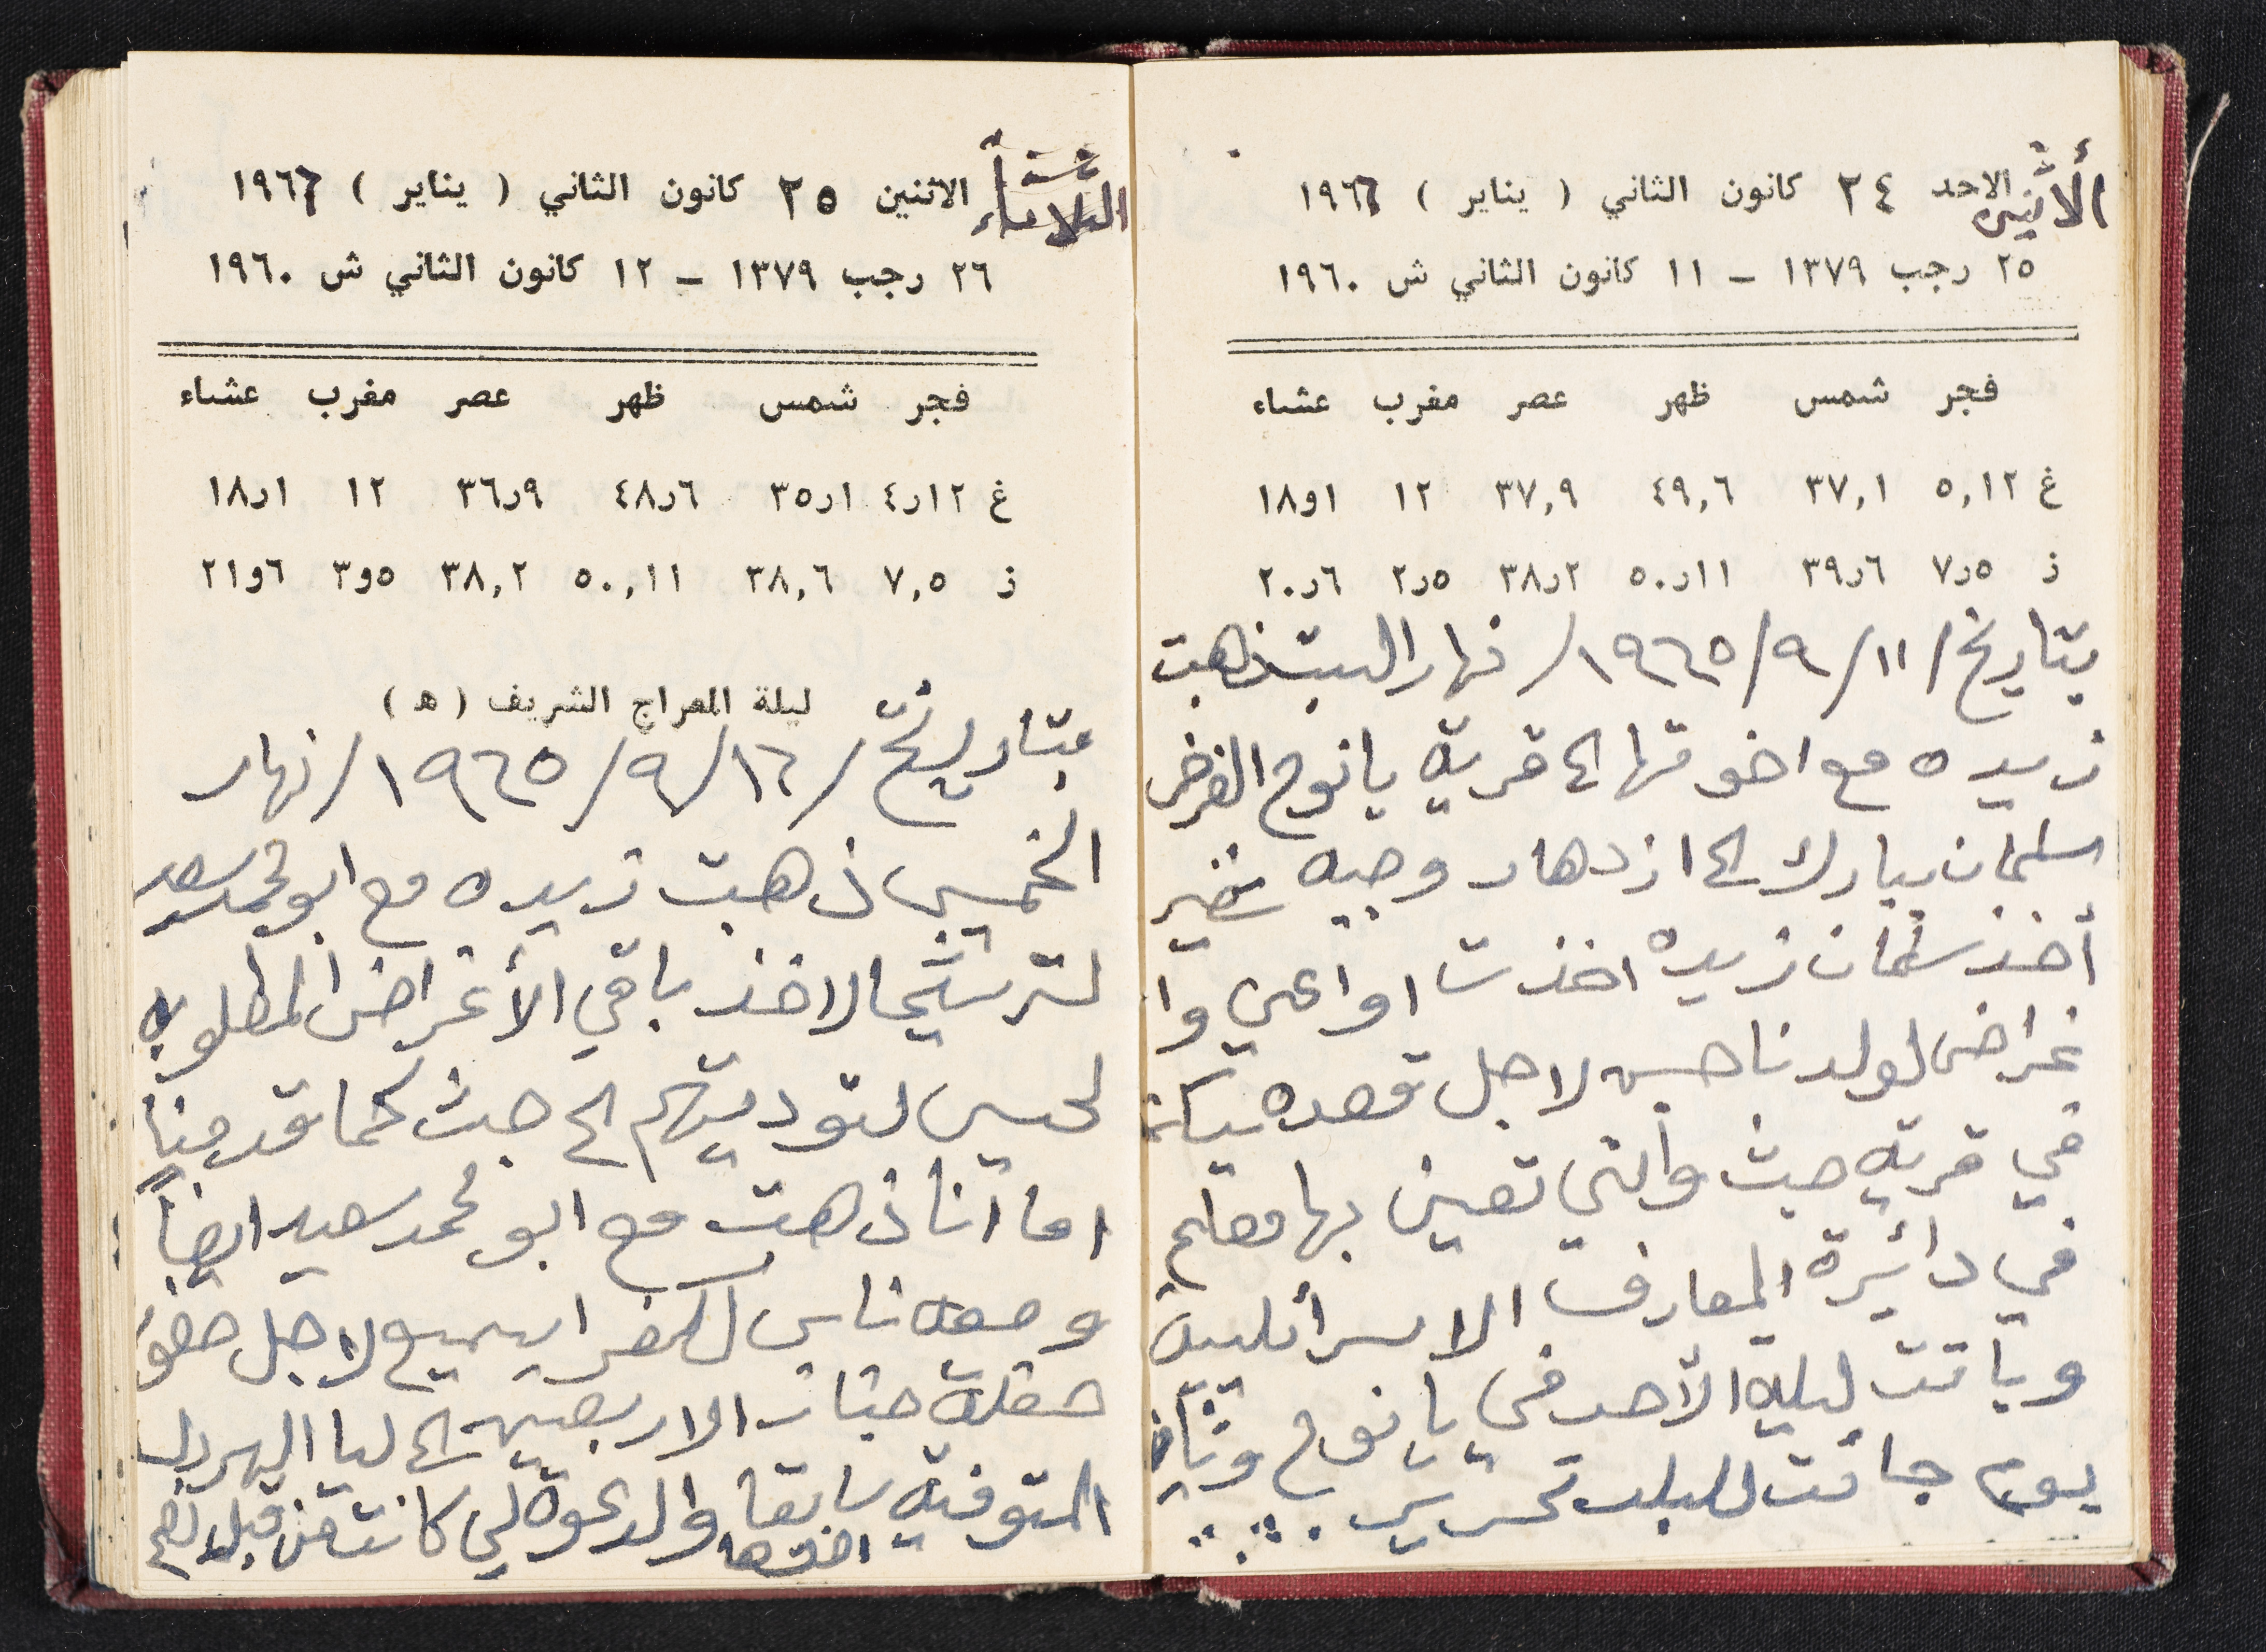 الأثنين
الاحد ٢٤ كانون الثاني ( يناير ) ١٩٦٦
٢٥ رجب ١٣٧٩ – ١١ كانون الثاني ش ١٩٦٠
فجر شمس ظهر عصر مغرب عشاء
غ ٥,١٢ ٣٧,١ ٤٩,٦ ٣٧,٩ ١٢ ١و١٨
ز ٥ر٧ ٦ر٣٩ ١١ر٥٠ ٢ر٣٨ ٥ر٢ ٦ر٢٠
بتاريخ /١١/٩/١٩٦٥/ نهار السبت ذهبت
زيده مع اخوتها الى قرية يانوح
سلمان يبارك الى ازدهار وجيه
أخذ سلمان زيده اخذت اواعي وا
غراض لولدنا حسين لاجل قعده
في قرية جث والتي تعين بها معلم
في دائيرة المعارف الاسرأئيلية
وباتت ليلة الأحد في يانوح وثاني
يوم جائت للبلد تحرير
الثلاثاء
الاثنين ٢٥ كانون الثاني ( يناير ) ١٩٦٦
٢٦ رجب ١٣٧٩ – ١٢ كانون الثاني ش ١٩٦٠
فجر شمس ظهر عصر مغرب عشاء
غ ١٢ر٤ ١ر٣٥ ٦ر٤٨ ٩ر٣٦ ١٢ ١ر١٨
ز ٧,٥ ٣٨,٦ ٥٠,١١ ٣٨,٢ ٥و٣ ٦و٢١
ليلة المعراج الشريف (ه)
بتاريخ /١٦/٩/١٩٦٥/ نهار
الخميس ذهبت زيده مع ابو محمد سعيد
لترشيحا لاخذ باقي الأغراض المطلوبه
لحسين لتوديتهم الى جث كما قدمنا
اما انا ذهبت مع ابو محمد سعيد ايضاً
ومعه ناس لكفر اسميع لاجل حضور
حفلة جناز الاربعين الى ليا
المتوفية سابقا والدعوة لي كانت من قبل
اختها